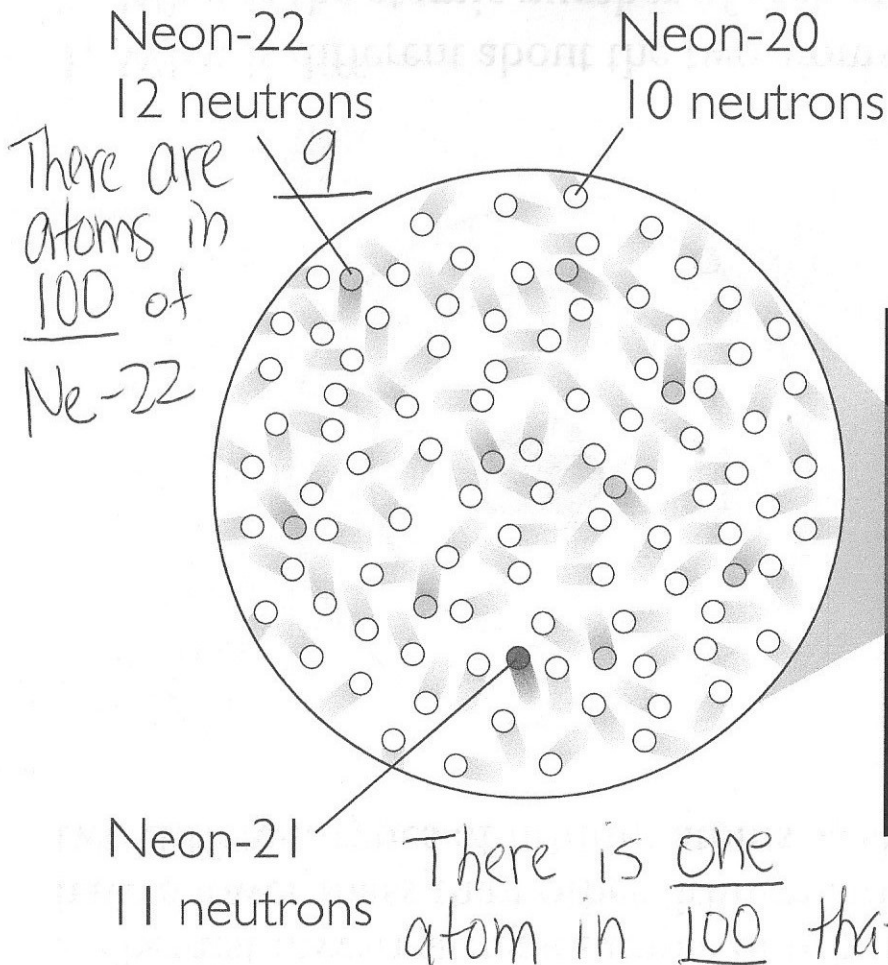 Neon-22
12 neutrons
Neon-20
10 neutrons
There are 9
atoms in
100 of
Ne-22
Neon-21
11 neutrons
There is one
atom in 100